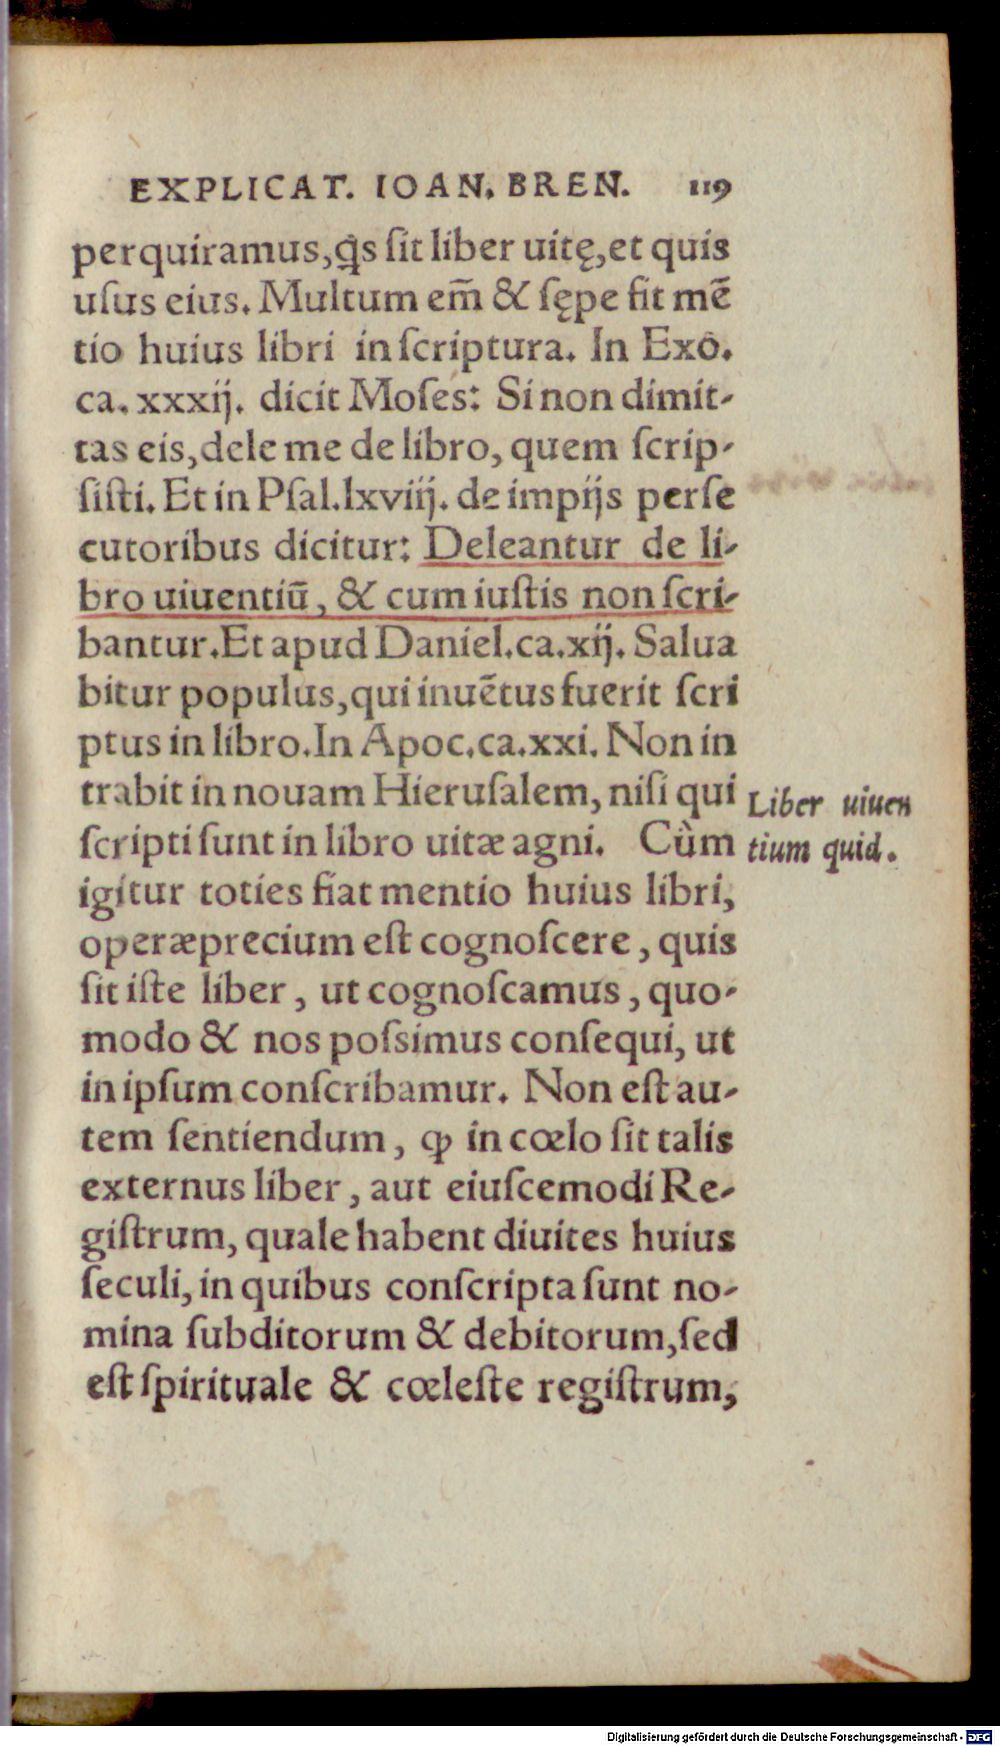 EXPLICAT. IOAN. BREN. 119
perquiramus, qͥs ſit liber uitę, et quis
uſus eius. Multum em̃ & ſępe fit mẽ
tio huius libri in ſcriptura. In Exô.
ca. xxxij. dicit Moſes: Si non dimit-
tas eis, dele me de libro, quem ſcrip-
ſiſti. Et in Pſal. lxviij. de impijs perſe
cutoribus dicitur: Deleantur de li-
bro uiuentiū, & cum iuſtis non ſcri-
bantur. Et apud Daniel. ca. xij. Salua
bitur populus, qui inuẽtus fuerit ſcri
ptus in libro. In Apoc. ca. xxi. Non in
trabit in nouam Hieruſalem, niſi qui
ſcripti ſunt in libro uitæ agni. Cùm
igitur toties fiat mentio huius libri,
operæprecium eſt cognoſcere, quis
ſit iſte liber, ut cognoſcamus, quo-
modo & nos poſsimus conſequi, ut
in ipſum conſcribamur. Non eſt au-
tem ſentiendum, ꝙ in cœlo ſit talis
externus liber, aut eiuſcemodi Re-
giſtrum, quale habent diuites huius
ſeculi, in quibus conſcripta ſunt no-
mina ſubditorum & debitorum, ſed
eſt ſpirituale & cœleſte regiſtrum,
Liber uiuen
tium quid.
Digitalisierung gefördert durch die Deutsche Forschungsgemeinschaft - DFG